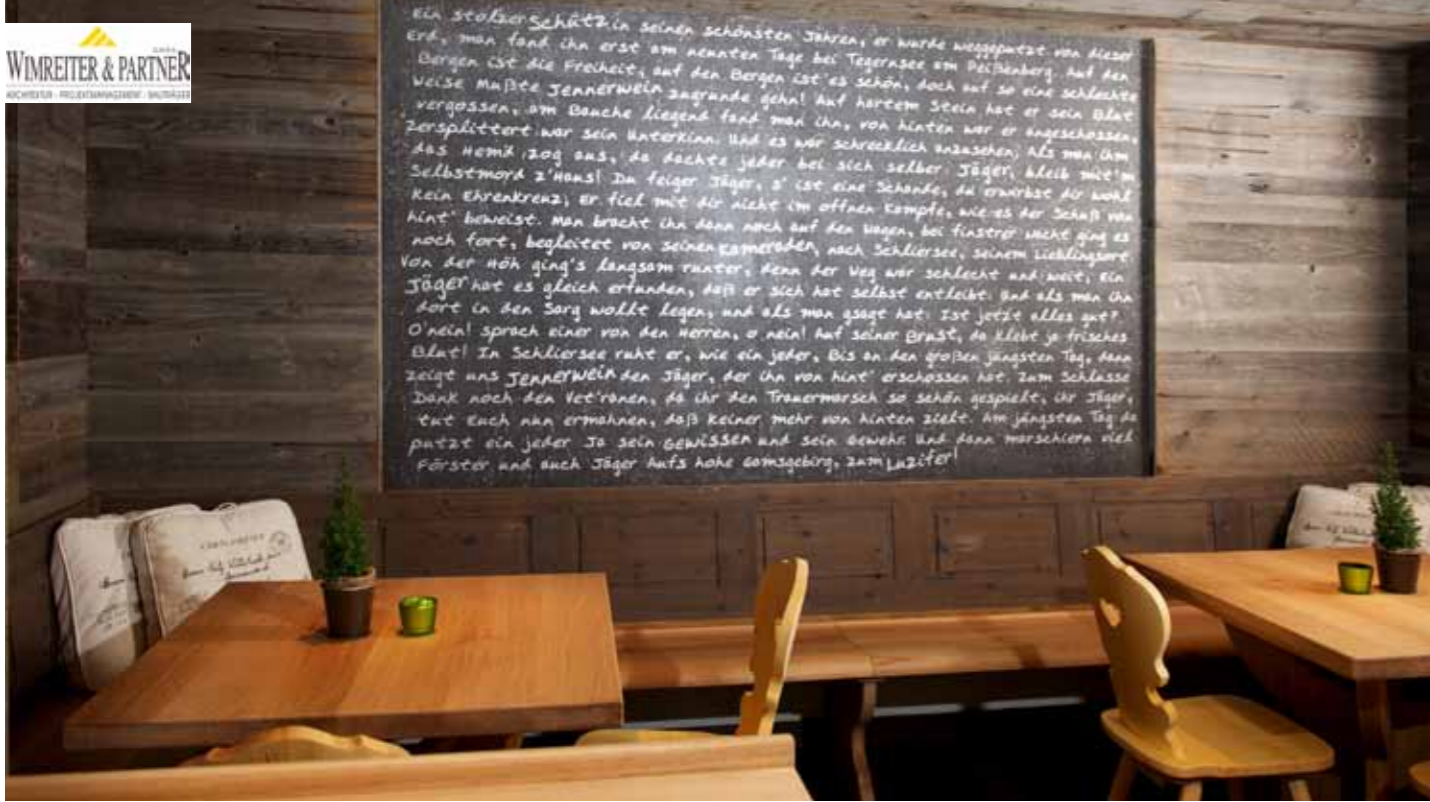 WIMREITER & PARTNER
ARCHITEKTUR - PROJEKTMANAGEMENT - BAUTRÄGER
Ein stolzer Schütz in seinen schönsten Jahren, er wurde weggeputzt von dieser
Erd, man fand ihn erst am neunten Tage bei Tegernsee am Peißenberg. Auf den
Bergen ist die Freiheit, auf den Bergen ist es schön, doch auf so eine schlechte
Weise mußte Jennerwein zugrunde gehn! Auf hartem Stein hat er sein Blut
vergossen, am Bauche liegend fand man ihn, von hinten war er angeschossen,
Zersplittert war sein Unterkinn. Und es war schrecklich anzusehen, Als man ihm
das Hemd zog aus, da dachte jeder bei sich selber: Jäger, bleib mit'm
Selbstmord z'Haus! Du feiger Jäger, s' ist eine Schande, du erwirbst dir wohl
kein Ehrenkreuz; Er fiel mit dir nicht im offnen Kampfe, wie es der Schuß von
hint' beweist. Man bracht ihn dann noch auf den Wagen, bei finstrer Nacht ging es
noch fort, begleitet von seinen Kameraden, nach Schliersee, seinem Lieblingsort
Von der Höh ging's langsam runter, denn der Weg war schlecht und weit, Ein
Jäger hat es gleich erfunden, daß er sich hat selbst entleibt. Und als man ihn
dort in den Sarg wollt legen, und als man gsagt hat: Ist jetzt alles gut?
O'nein! sprach einer von den Herren, o nein! Auf seiner Brust, da klebt ja frisches
Blut! In Schliersee ruht er, wie ein jeder, Bis an den großen jüngsten Tag, dann
zeigt uns Jennerwein den Jäger, der ihn von hint' erschossen hat. Zum Schlusse
Dank noch den Vet'ranen, da ihr den Trauermarsch so schön gespielt, ihr Jäger,
tut Euch nun ermahnen, daß keiner mehr von hinten zielt. Am jüngsten Tag da
putzt ein jeder Ja sein Gewissen und sein Gewehr. Und dann marschiern viel
Förster und auch Jäger Aufs hohe Gamsgebirg, zum Luzifer!